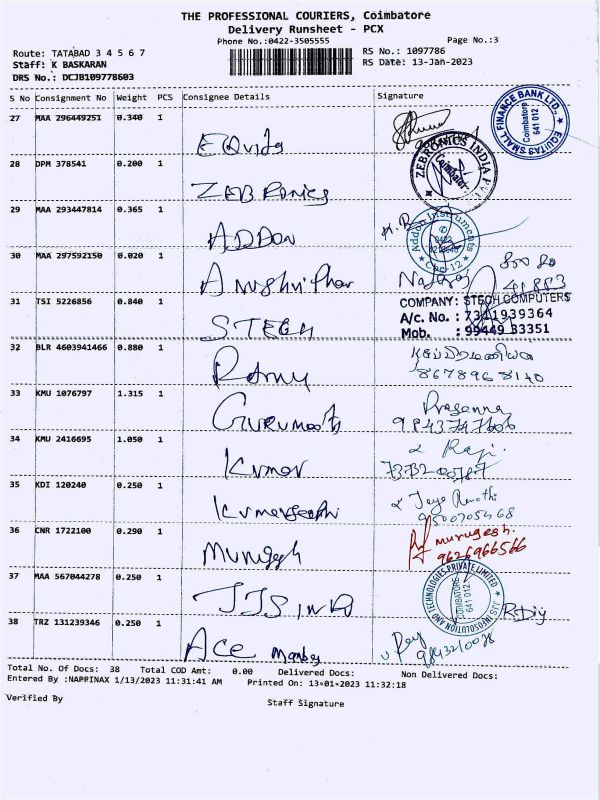 THE PROFESSIONAL COURIERS, Coimbatore
Delivery Runsheet - PCX
Phone No.:0422-3505555
Page No.:3
Route: TATABAD 3 4 5 6 7
RS No.: 1097786
Staff: K BASKARAN
RS Date: 13-Jan-2023
DRS No.: DCJB109778603
S No Consignment No Weight PCS Consignee Details Signature
27 MAA 296449251 0.340 1 EQuitas
EQUITAS SMALL FINANCE BANK LTD., Coimbatore 641 012
28 DPM 378541 0.200 1 ZEBRonics
ZEBRONICS INDIA Pvt Coimbatore
29 MAA 293447814 0.365 1 ADDON
Addon Instruments Cbe-12
30 MAA 297592150 0.020 1
31 TSI 5226856 0.840 1 STECH
COMPANY: STECH COMPUTERS
A/c. No. : 7311939364
Mob. : 99449 33351
32 BLR 4603941466 0.880 1
8678968140
33 KMU 1076797 1.315 1
Prasanna
34 KMU 2416695 1.050 1 Kumar
Raji
35 KDI 120240 0.250 1
9500705468
36 CNR 1722100 0.290 1 Murugesh
murugesh.
9626966566
37 MAA 567044278 0.250 1 JJS IND
JJS INFOSOLUTION AND TECHNOLOGIES PRIVATE LIMITED COIMBATORE 641 012
38 TRZ 131239346 0.250 1 Ace
Total No. Of Docs: 38 Total COD Amt: 0.00 Delivered Docs: Non Delivered Docs:
Entered By :NAPPINAX 1/13/2023 11:31:41 AM Printed On: 13-01-2023 11:32:18
Verified By
Staff Signature